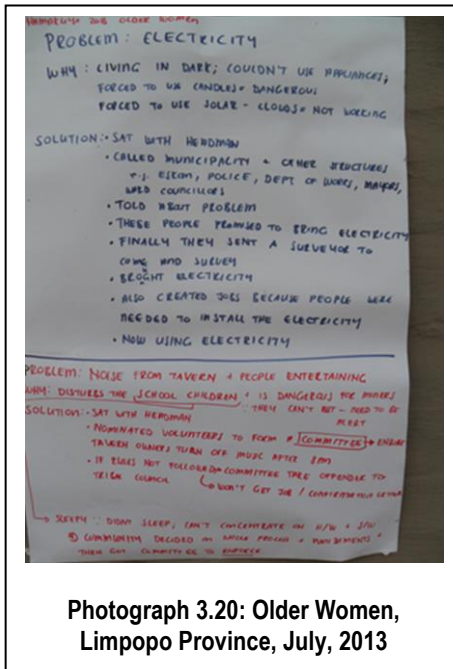 OLDER WOMEN
PROBLEM: ELECTRICITY
WHY: LIVING IN DARK; COULDN'T USE APPLIANCES;
FORCED TO USE CANDLES = DANGEROUS
FORCED TO USE SOLAR - CLOUDS = NOT WORKING
SOLUTION: • SAT WITH HEADMAN
• CALLED MUNICIPALITY + OTHER STRUCTURES
e.g. ESKOM, POLICE, DEPT OF WORKS, MAYORS,
WARD COUNCILLORS
• TOLD ABOUT PROBLEM
• THESE PEOPLE PROMISED TO BRING ELECTRICITY
• FINALLY THEY SENT A SURVEYOR TO
COME AND SURVEY
• BROUGHT ELECTRICITY
• ALSO CREATED JOBS BECAUSE PEOPLE WERE
NEEDED TO INSTALL THE ELECTRICITY
• NOW USING ELECTRICITY
PROBLEM: NOISE FROM TAVERN + PEOPLE ENTERTAINING
WHY: DISTURBS THE SCHOOL CHILDREN + IS DANGEROUS FOR MINERS
∵ THEY CAN'T REST - NEED TO BE
ALERT
SOLUTION: - SAT WITH HEADMAN
• NOMINATED VOLUNTEERS TO FORM A COMMITTEE → ENSURE
TAVERN OWNERS TURN OFF MUSIC AFTER 8PM
• IF RULES NOT FOLLOWED → COMMITTEE TAKE OFFENDER TO
TRIBAL COUNCIL
↳ WON'T GET JOB / CONFIRMATION LETTER
→ SLEEPY ∵ DIDNT SLEEP, CAN'T CONCENTRATE ON H/W + S/W
COMMUNITY DECIDED ON WHOLE PROCESS + PUNISHMENTS +
THEN GOT COMMITTEE TO ENFORCE
Photograph 3.20: Older Women,
Limpopo Province, July, 2013